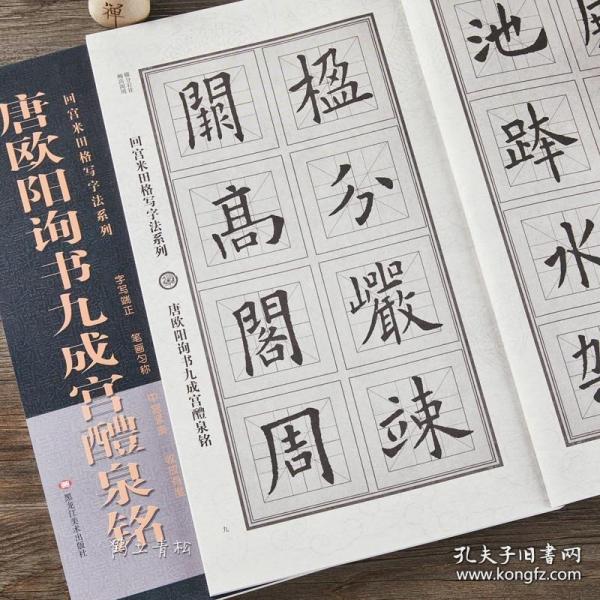 唐欧阳询书九成宫醴泉铭
回宫米田格写字法系列
字写端正 笔画匀称
黑龙江美术出版社
池跨水架
楹分巖竦
闕髙閣周
回宫米田格写字法系列
唐欧阳询书九成宫醴泉铭
九
禅
鹤立青松
孔夫子旧書网
www.kongfz.com